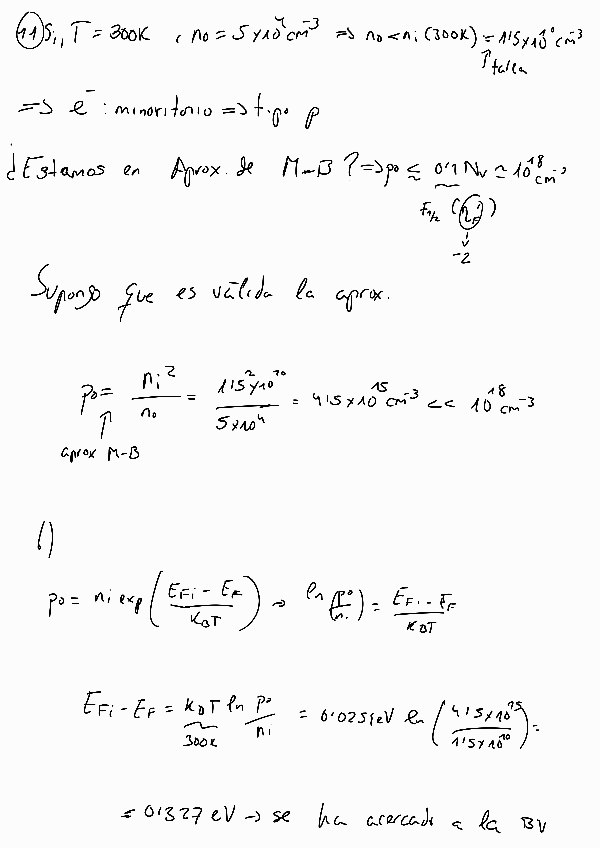 11) Si, T = 300K, n₀ = 5×10⁴ cm⁻³ ⇒ n₀ < ni (300K) = 1'5×10¹⁰ cm⁻³
↑ tabla
⇒ e⁻: minoritario ⇒ tipo p
¿Estamos en Aprox. de M-B? ⇒ p₀ ≲ 0'1 Nv ≃ 10¹⁸ cm⁻³
F₁/₂ (η_F)
↓
-2
Supongo que es válida la aprox.
p₀ = ni²/n₀ = 1'5²×10²⁰/5×10⁴ = 4'5×10¹⁵ cm⁻³ << 10¹⁸ cm⁻³
↑
aprox M-B
1)
p₀ = ni exp((E_Fi - E_F)/K_BT) → ln(p₀/ni) = (E_Fi - E_F)/K_BT
E_Fi - E_F = K_BT ln p₀/ni = 0'0259eV ln(4'5×10¹⁵/1'5×10¹⁰) =
300K
= 0'327 eV → se ha acercado a la BV